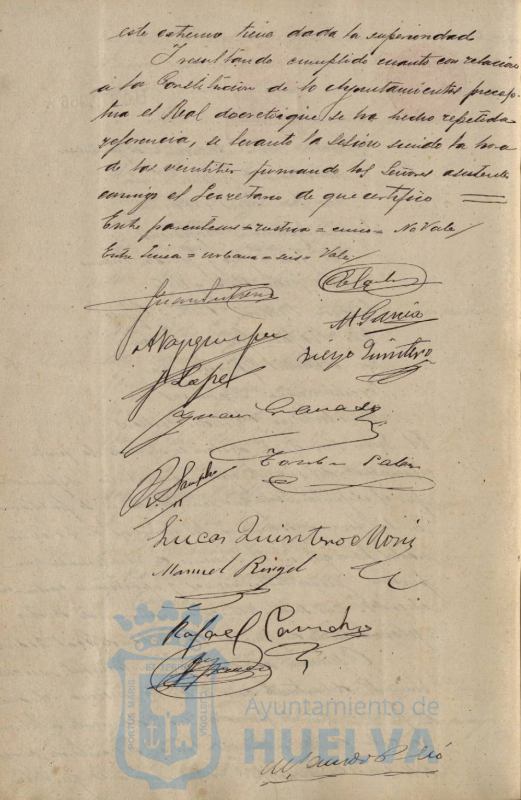 este extremo tiene dada la superioridad
Y resultando cumplido cuanto con relacion
á la Constitucion de los Ayuntamientos precep-
túa el Real decreto que se ha hecho repetida
referencia, se levantó la sesion siendo la hora
de las veintitres firmando los Señores asistentes
conmigo el Secretario de que certifico
Entre parentesis = rustica = cinco = No Vale/
Entre linea = urbana = seis = Vale/
M Garcia
Diego Quintero
J Lopez
Granado
Lucas Quintero Mori
Manuel Rengel
Rafael Camacho
PORTUS MARIS
CUSTODIA
Ayuntamiento de
HUELVA